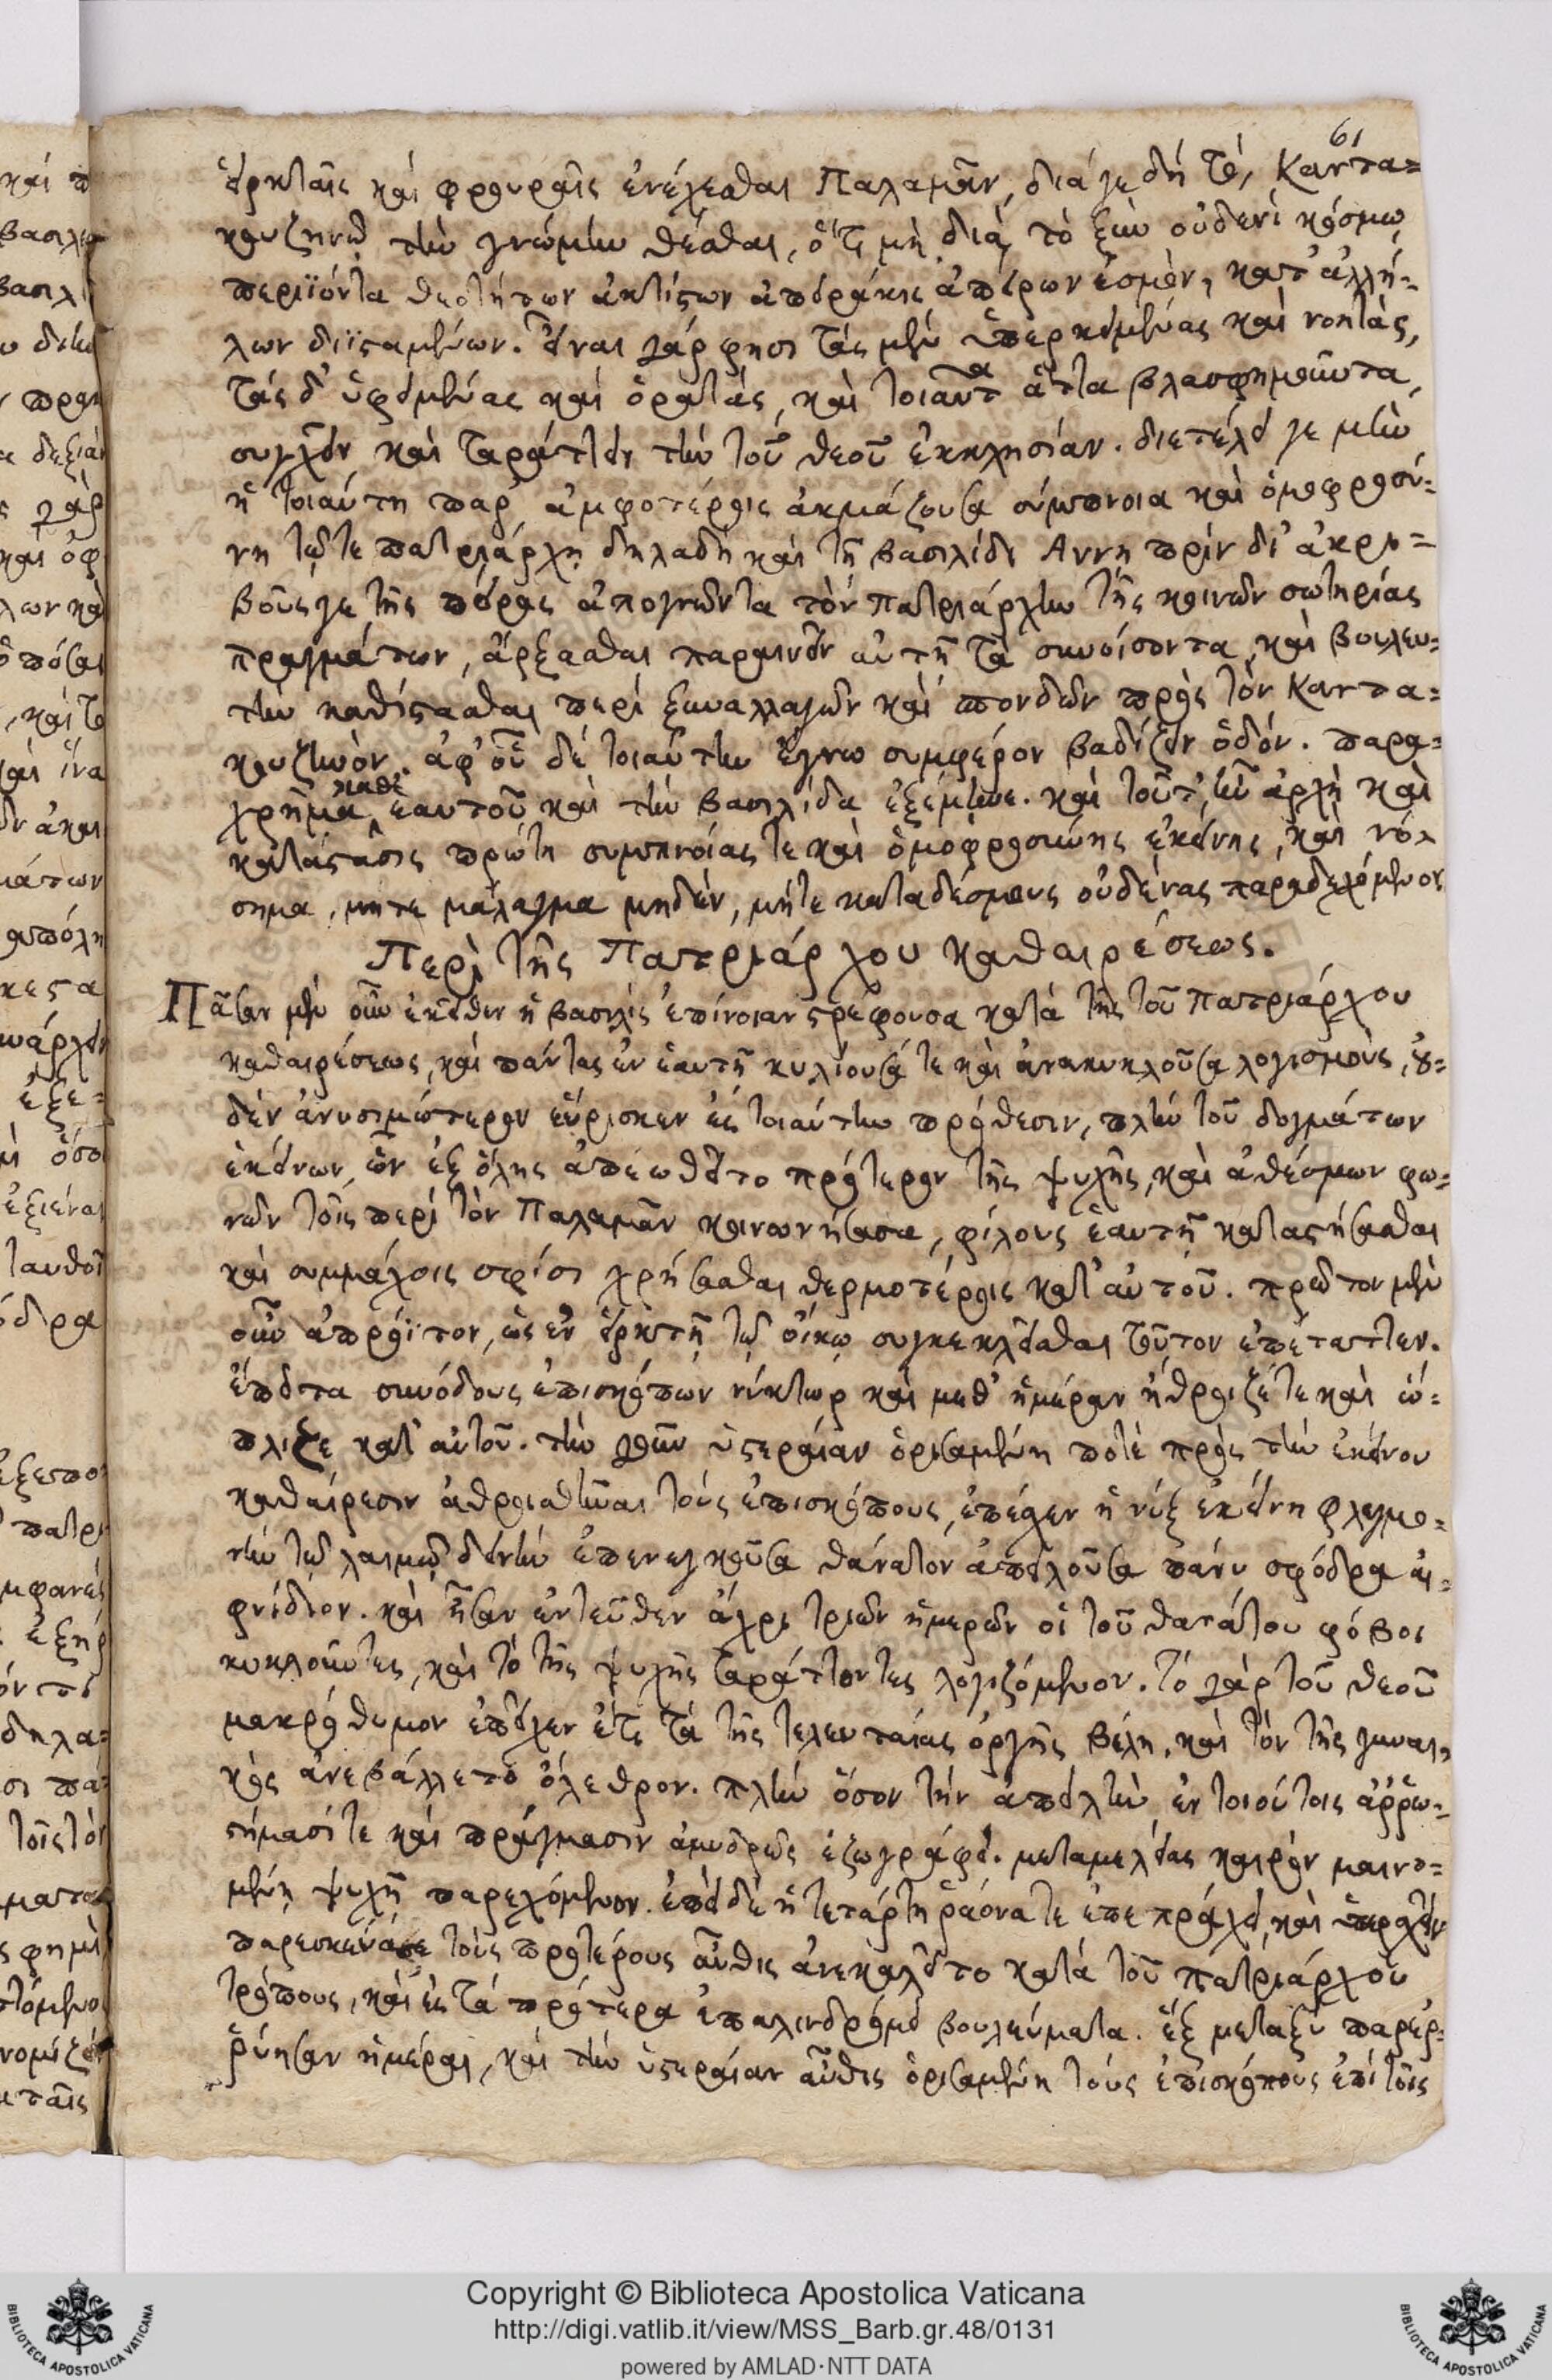 61
εἱρκταῖς καὶ φρουραῖς ἐνέχεσθαι Παλαμᾶν, διά γε δὴ τὸ, Καντα=
κουζηνῷ τὴν γνώμην θέσθαι, ὅτι μὴ διὰ τὸ ξὺν οὐδενὶ κόσμῳ
περιϊόντα θεοτήτων ἀκτίστων ἀπειράκις ἀπείρων ἑσμὸν, κατ' ἀλλή=
λων διϊσταμένων. εἶναι γάρ φησι τὰς μὲν ὑπερκειμένας καὶ νοητὰς,
τὰς δ' ὑφειμένας καὶ ὁρατὰς, καὶ τοιαῦτα ἄττα βλασφημοῦντα,
συγχεῖν καὶ ταράττειν τὴν τοῦ θεοῦ ἐκκλησίαν. διετέλει γε μὴν
ἡ τοιαύτη παρ' ἀμφοτέροις ἀκμάζουσα σύμπνοια καὶ ὁμοφροσύ=
νη τῷ τε πατριάρχῃ δηλαδὴ καὶ τῇ βασιλίδι Αννῃ πρὶν δι' ἀκρι=
βοῦς γε τῆς πείρας ἀπογνῶντα τὸν πατριάρχην τῆς κοινῶν σωτηρίας
πραγμάτων, ἄρξασθαι παραινεῖν αὐτῇ τὰ συνοίσοντα, καὶ βουλευ=
τὴν καθίστασθαι περὶ ξυναλλαγῶν καὶ σπονδῶν πρὸς τὸν Καντα=
κουζηνὸν. ἀφ' οὗ δὲ τοιαύτην ἔγνω συμφέρον βαδίζειν ὁδόν. παρα=
χρῆμα καθ' ἑαυτοῦ καὶ τὴν βασιλίδα ἐξέμηνε. καὶ τοῦτ' ἦν ἀρχὴ καὶ
κατάστασις πρώτη συμπνοίας τε καὶ ὁμοφροσύνης ἐκείνης, καὶ νό=
σημα, μήτε μάλαγμα μηδὲν, μήτε καταδέσμους οὐδένας παραδεχόμενον
Περὶ τῆς Πατριάρχου καθαιρέσεως.
Πᾶσαν μὲν οὖν ἐκεῖθεν ἡ βασιλὶς ἐπίνοιαν στρέφουσα κατὰ τῆς τοῦ πατριάρχου
καθαιρέσεως, καὶ πάντας ἐν ἑαυτῇ κυλίουσά τε καὶ ἀνακυκλοῦσα λογισμοὺς, οὐ=
δὲν ἀνυσιμώτερον εὕρισκεν εἰς τοιαύτην πρόθεσιν, πλὴν τοῦ δογμάτων
ἐκείνων, ὧν ἐξ ὅλης ἀπεωθεῖτο πρότερον τῆς ψυχῆς, καὶ ἀθέσμων φω=
νῶν τοῖς περὶ τὸν Παλαμᾶν κοινωνήσασα, φίλους ἑαυτῇ καταστήσασθαι
καὶ συμμάχοις σφίσι χρήσασθαι θερμοτέροις κατ' αὐτοῦ. πρῶτον μὲν
οὖν ἀπρόϊτον, ὡς ἐν εἱρκτῇ τῷ οἴκῳ συγκεκλεῖσθαι τοῦτον ἐπέταττεν.
ἔπειτα συνόδους ἐπισκόπων νύκτωρ καὶ μεθ' ἡμέραν ἤθροιζέ τε καὶ ὥ=
πλιζε κατ' αὐτοῦ. τὴν γοῦν ὑστεραίαν ὁρισαμένη ποτὲ πρὸς τὴν ἐκείνου
καθαίρεσιν ἀθροισθῆναι τοὺς ἐπισκόπους, ἐπέσχεν ἡ νὺξ ἐκείνη φλεγμο=
νὴν τῷ λαιμῷ δεινὴν ἐπενεγκοῦσα θάνατον ἀπειλοῦσα πάνυ σφόδρα αἰ=
φνίδιον. καὶ ἦσαν ἐντεῦθεν ἄχρι τριῶν ἡμερῶν οἱ τοῦ θανάτου φόβοι
κυκλοῦντες, καὶ τὸ τῆς ψυχῆς ταράττοντες λογιζόμενον. τὸ γὰρ τοῦ θεοῦ
μακρόθυμον ἐπεῖχεν ἔτι τὰ τῆς τελευταίας ὀργῆς βέλη, καὶ τὸν τῆς γυναι=
κὸς ἀνεβάλλετο ὄλεθρον. πλὴν ὅσον τὴν ἀπειλὴν ἐν τοιούτοις ἀῤῥω=
στήμασί τε καὶ πράγμασιν ἀμυδρῶς ἐζωγράφει. μεταμελείας καιρὸν μαινο=
μένῃ ψυχῇ παρεχόμενον. ἐπεὶ δὲ ἡ τετάρτη ῥᾴονά τε ἐπεπράχει, καὶ ὑπερσχεῖν
παρεσκεύασε τοὺς προτέρους αὖθις ἀνεκαλεῖτο κατὰ τοῦ πατριάρχου
τρόπους, καὶ εἰς τὰ πρότερα ἐπαλινδρόμει βουλεύματα. ἓξ μεταξὺ παρεῤ=
ῥύησαν ἡμέραι, καὶ τὴν ὑστεραίαν αὖθις ὁρισαμένη τοὺς ἐπισκόπους ἐπὶ τοῖς
Copyright © Biblioteca Apostolica Vaticana
http://digi.vatlib.it/view/MSS_Barb.gr.48/0131
powered by AMLAD·NTT DATA
BIBLIOTECA APOSTOLICA VATICANA
BIBLIOTECA APOSTOLICA VATICANA